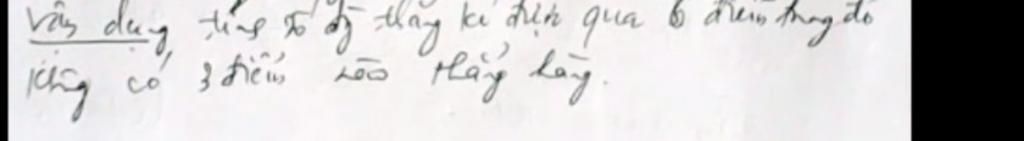 Vận dụng tính số đg thẳng kẻ được qua 6 điểm trong đó
không có 3 điểm nào thẳng hàng.